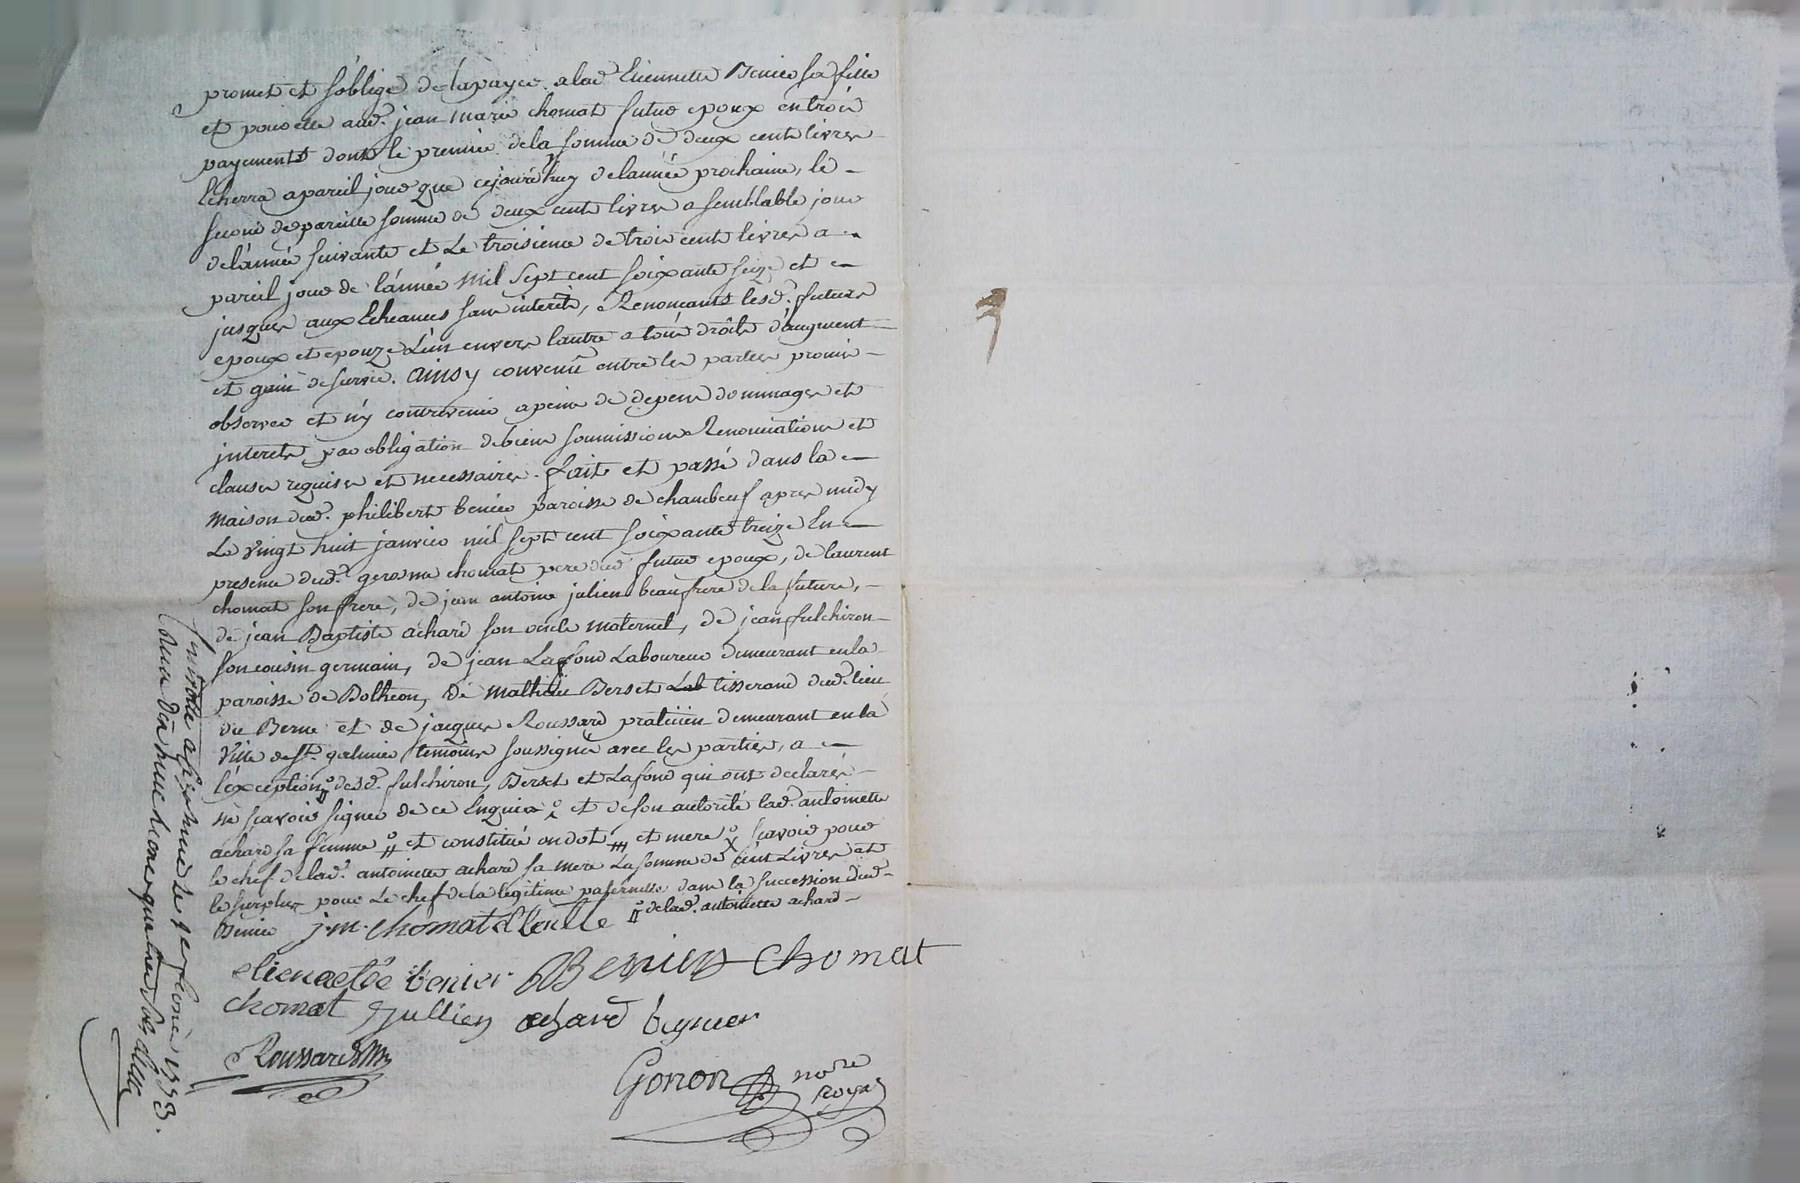 promet et s'oblige de la payer a lad. Etiennette Benier sa fille
et pour elle aud. jean marie chomat futur epoux en trois
payements dont le premier de la somme de deux cent livres
Echerra a pareil jour que cejourd'huy de lannée prochaine, le
second de pareille somme de deux cent livres a semblable jour
de l'année suivante et Le troisieme de trois cent livres a
pareil jour de l'année mil sept cent soixante seize et
jusques aux Echeances sans interets, Renonçants lesd. futurs
epoux et epouze L'un envers lautre a tous droits d'augment
et gain de survie. ainsy convenû entre les parties promis
observer et n'y contrevenir a peine de depens dommages et
interets par obligation de biens soumissions Renonciations et
clauses requises et necessaires. fait et passé dans la
maison dud. philibert benier paroisse de chambeuf apres midy
Le vingt huit janvier mil sept cent soixante treize En
presence dud. gerosme chomat pere dud. futur epoux, de laurent
chomat son frere, de jean antoine julien beaufrere de la future,
de jean Baptiste achard son oncle maternel, de jean fulchiron
son cousin germain, de jean Lafond Laboureur demeurant en la
paroisse de Botheon, de mathieu Berset Lab tisserand dud. lieu
de Berne et de jacques Roussard praticien demeurant en la
Ville de St. galmier temoins soussignés avec les parties, a
l'exception desd. fulchiron, Berset et Lafond qui ont declarés
ne sçavoir signer de ce Enquis et de son autorité lad. antoinette
achard sa femme et constitué en dot et mere sçavoir pour
le chef de lad. antoinette achard sa mere La somme de cent Livres et
le surplus pour Le chef de la legitime paternelle dans la succession dud.
Benier j. m. chomat
de lad. antoinette achard
etienaette benier Benier Chomat
chomat Jullien achard
Roussard
Gonon nore
royal
a st galmier le 1773.